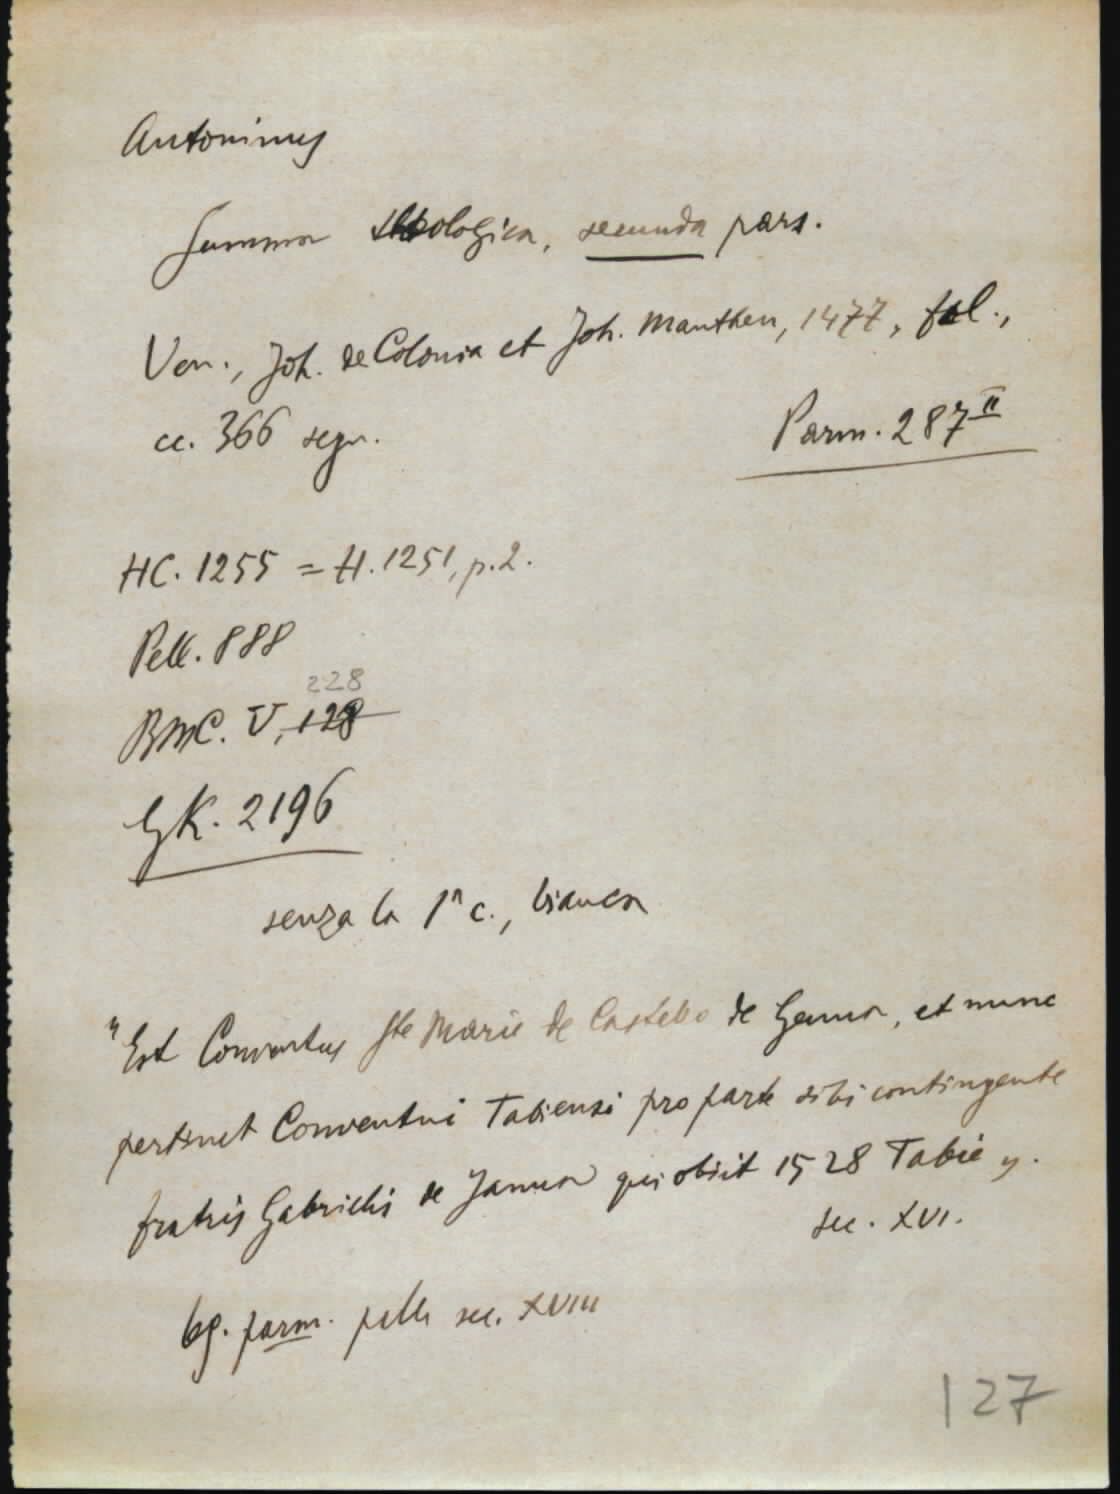 Antoninus
Summa theologica, secunda pars.
Ven., Joh. de Colonia et Joh. Manthen, 1477, fol.,
cc. 366 segn.
Parm. 287 II
HC. 1255 = H. 1251, p. 2.
Pell. 888
228
BMC. V, 128
GK. 2196
senza la 1ª c., bianca
"Est Conventus Ste Marie de Castello de Genua, et nunc
pertinet Conventui Tabiensi pro parte sibi contingente
fratris Gabrielis de Janua qui obiit 1528 Tabie".
sec. XVI.
leg. parm. pelle sec. XVIII
127